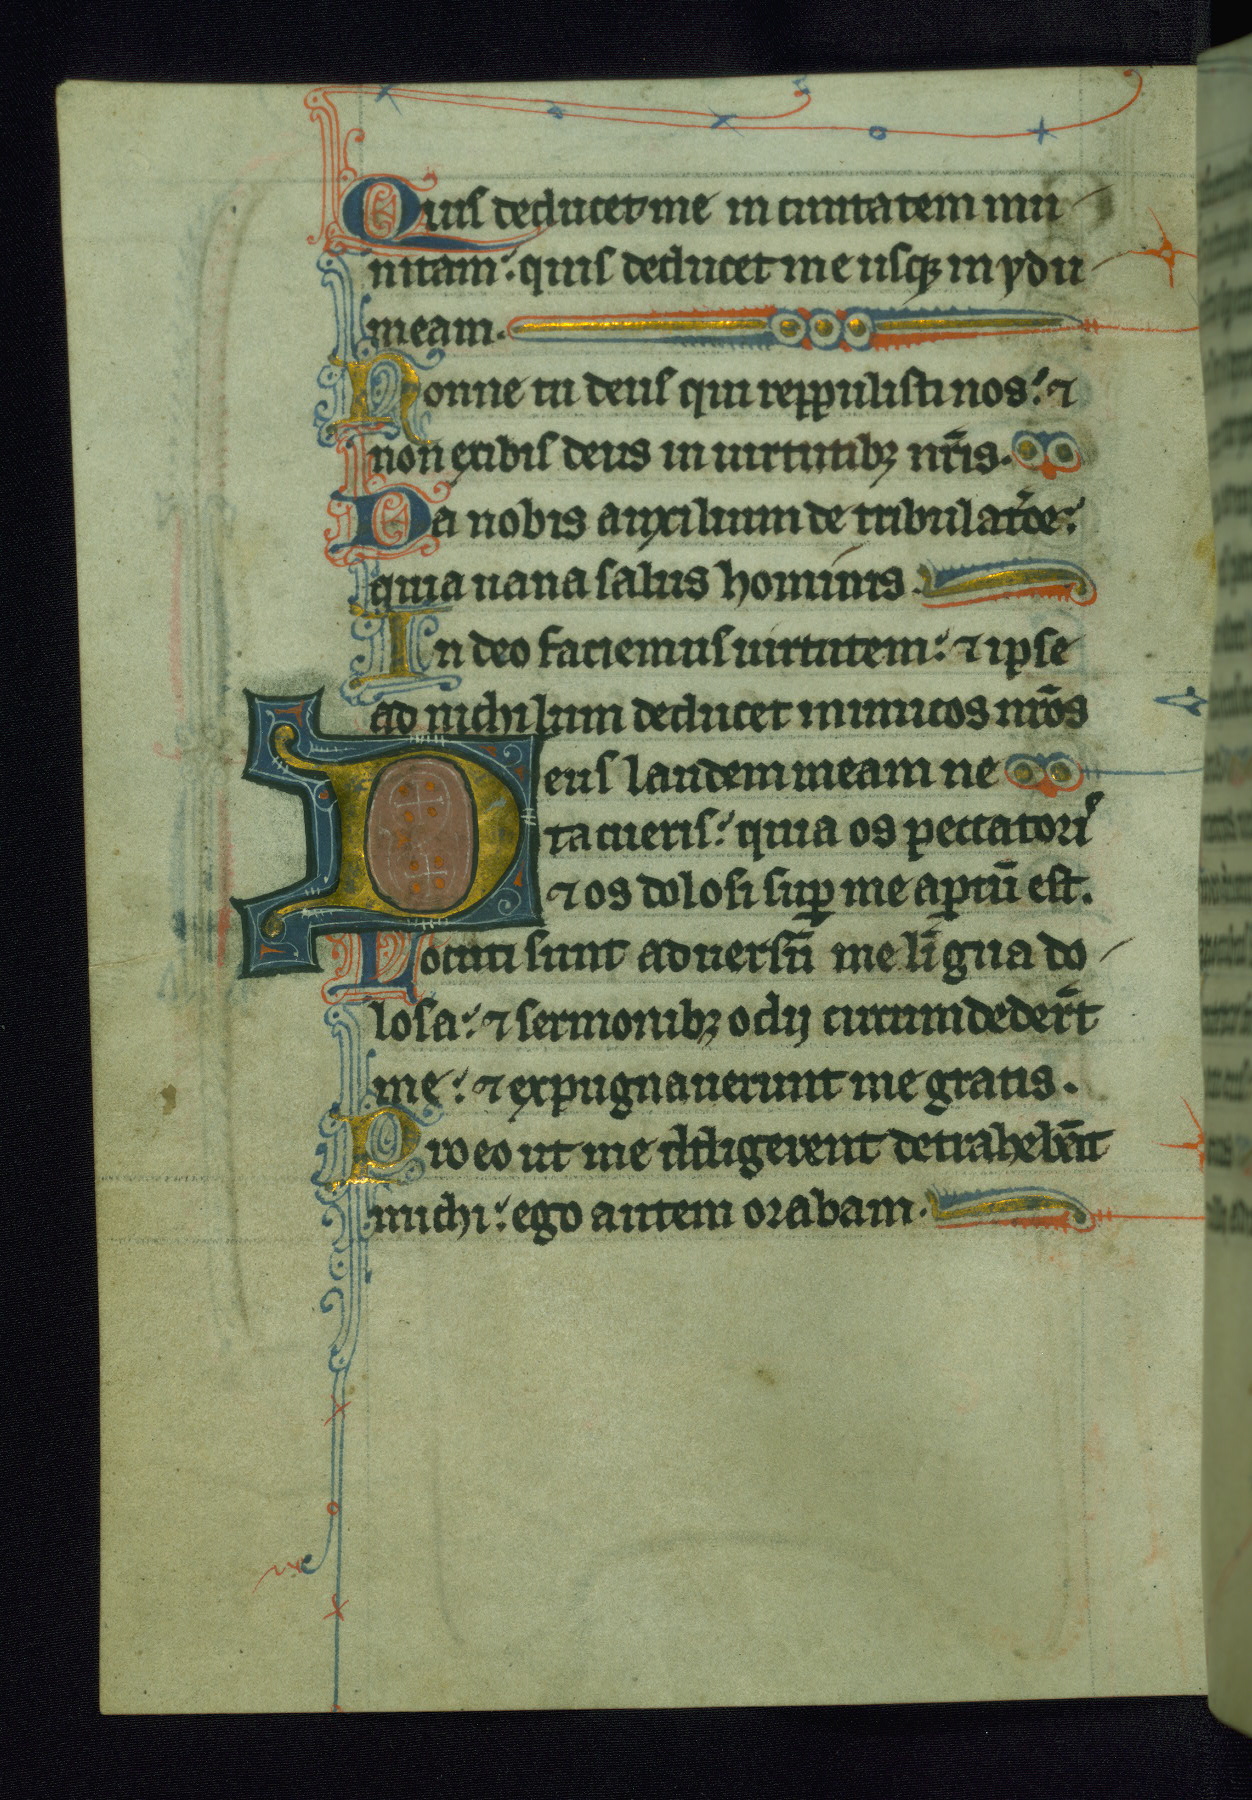 Quis deducet me in ciuitatem mu
nitam: quis deducet me usq; in ydu
meam.
Nonne tu deus qui reppulisti nos: ⁊
non exibis deus in uirtutib; nr̄is.
Da nobis auxilium de tribulat̄oe:
quia uana salus hominis.
In deo faciemus uirtutem: ⁊ ipse
ad nichilum deducet inimicos nr̄os
Deus laudem meam ne
tacueris: quia os peccatorꝰ
⁊ os dolosi suꝑ me aꝑtū est.
Locuti sunt aduersū me līgua do
losa: ⁊ sermonib; odij circumdeder̄t
me: ⁊ expugnauerunt me gratis.
Pro eo ut me diligerent detrahebāt
michi: ego autem orabam.